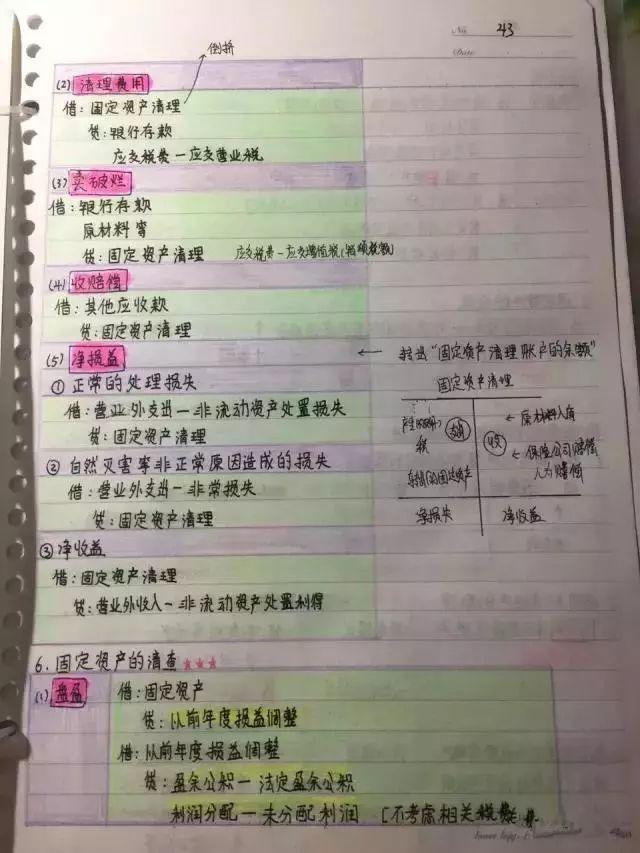 No. 43
Date
倒挤
(2) 清理费用
借：固定资产清理
贷：银行存款
应交税费－应交营业税
(3) 卖破烂
借：银行存款
原材料等
贷：固定资产清理 应交税费－应交增值税(销项税额)
(4) 收赔偿
借：其他应收款
贷：固定资产清理
(5) 净损益 ← 转出“固定资产清理账户的余额”
① 正常的处理损失
借：营业外支出－非流动资产处置损失
贷：固定资产清理
② 自然灾害等非正常原因造成的损失
借：营业外支出－非常损失
贷：固定资产清理
③ 净收益
借：固定资产清理
贷：营业外收入－非流动资产处置利得
固定资产清理
税
支
收
← 原材料入库
← 保险公司赔偿
人为赔偿
净损失
净收益
6. 固定资产的清查 ★★★
(1) 盘盈
借：固定资产
贷：以前年度损益调整
借：以前年度损益调整
贷：盈余公积－法定盈余公积
利润分配－未分配利润 [不考虑相关税费